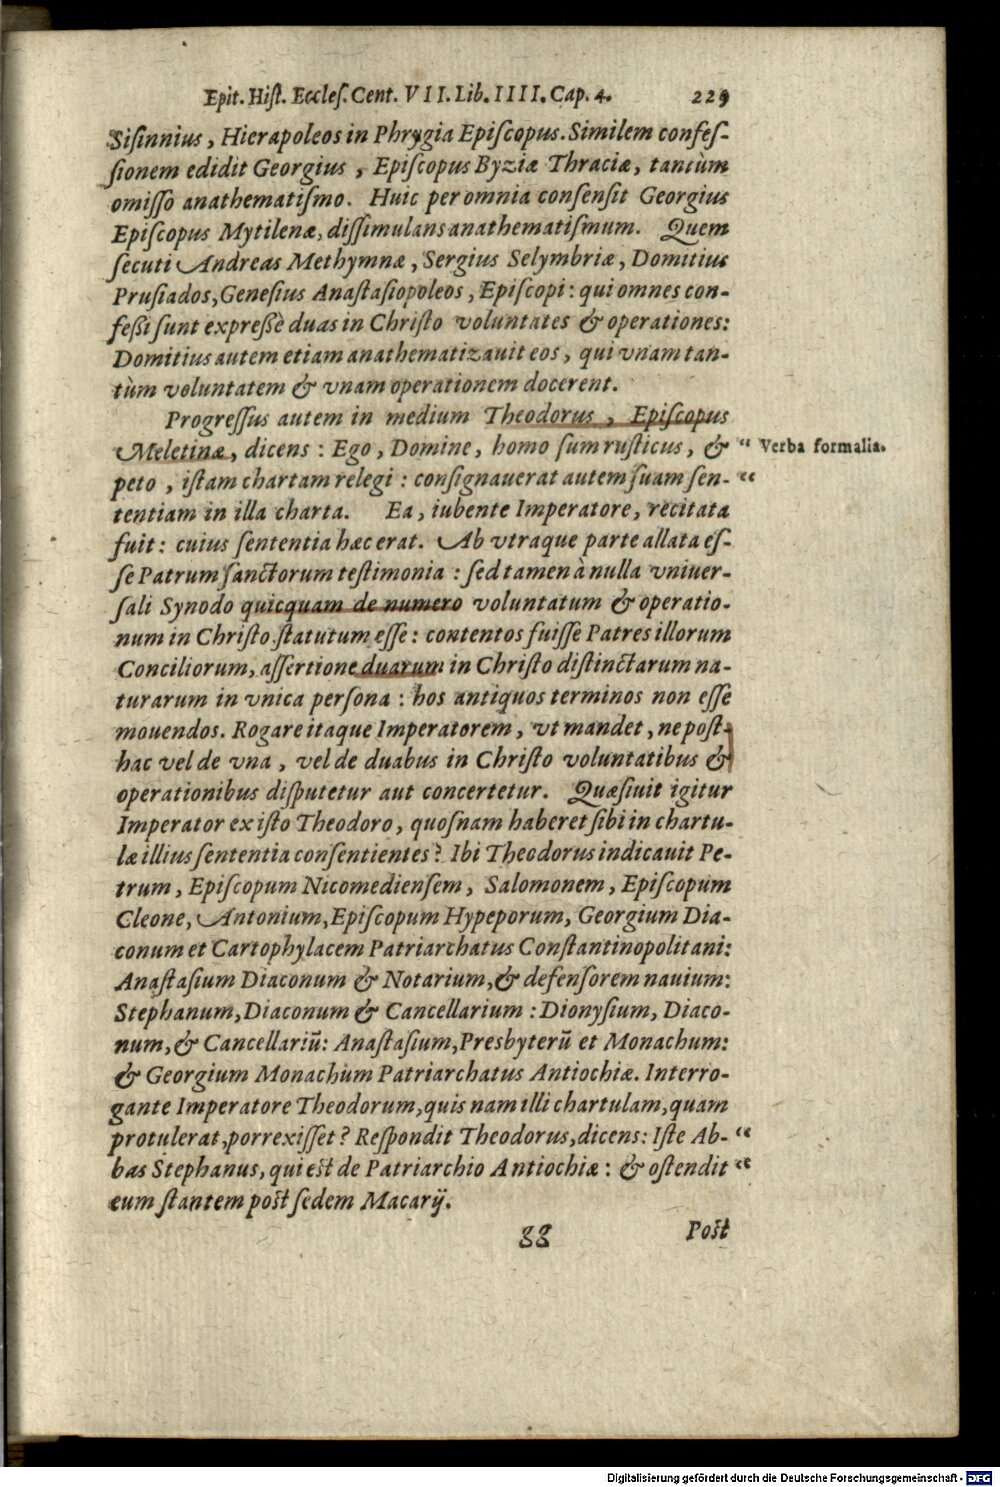 Epit. Hiſt. Eccleſ. Cent. VII. Lib. IIII. Cap. 4. 229
Siſinnius, Hierapoleos in Phrygia Epiſcopus. Similem confeſ-
ſionem edidit Georgius, Epiſcopus Byziæ Thraciæ, tantùm
omiſſo anathematiſmo. Huic per omnia conſenſit Georgius
Epiſcopus Mytilenæ, diſſimulans anathematiſmum. Quem
ſecuti Andreas Methymnæ, Sergius Selymbriæ, Domitius
Pruſiados, Geneſius Anaſtaſiopoleos, Epiſcopi: qui omnes con-
feßi ſunt expreßè duas in Chriſto voluntates & operationes:
Domitius autem etiam anathematizauit eos, qui vnam tan-
tùm voluntatem & vnam operationem docerent.
Progreſſus autem in medium Theodorus, Epiſcopus
Meletinæ, dicens: Ego, Domine, homo ſum ruſticus, & “ Verba formalia.
peto, iſtam chartam relegi: conſignauerat autem ſuam ſen- “
tentiam in illa charta. Ea, iubente Imperatore, recitata
fuit: cuius ſententia hæc erat. Ab vtraque parte allata eſ-
ſe Patrum ſanctorum teſtimonia: ſed tamen à nulla vniuer-
ſali Synodo quicquam de numero voluntatum & operatio-
num in Chriſto ſtatutum eſſe: contentos fuiſſe Patres illorum
Conciliorum, aſſertione duarum in Chriſto diſtinctarum na-
turarum in vnica perſona: hos antiquos terminos non eſſe
mouendos. Rogare itaque Imperatorem, vt mandet, ne poſt-
hac vel de vna, vel de duabus in Chriſto voluntatibus &
operationibus diſputetur aut concertetur. Quæſiuit igitur
Imperator ex iſto Theodoro, quoſnam haberet ſibi in chartu-
læ illius ſententia conſentientes? Ibi Theodorus indicauit Pe-
trum, Epiſcopum Nicomedienſem, Salomonem, Epiſcopum
Cleone, Antonium, Epiſcopum Hypeporum, Georgium Dia-
conum et Cartophylacem Patriarchatus Conſtantinopolitani:
Anaſtaſium Diaconum & Notarium, & defenſorem nauium:
Stephanum, Diaconum & Cancellarium: Dionyſium, Diaco-
num, & Cancellariū: Anaſtaſium, Presbyterū et Monachum:
& Georgium Monachum Patriarchatus Antiochiæ. Interro-
gante Imperatore Theodorum, quis nam illi chartulam, quam
protulerat, porrexiſſet? Reſpondit Theodorus, dicens: Iſte Ab- “
bas Stephanus, qui eſt de Patriarchio Antiochiæ: & oſtendit “
eum ſtantem poſt ſedem Macarij.
gg Poſt
Digitalisierung gefördert durch die Deutsche Forschungsgemeinschaft - DFG